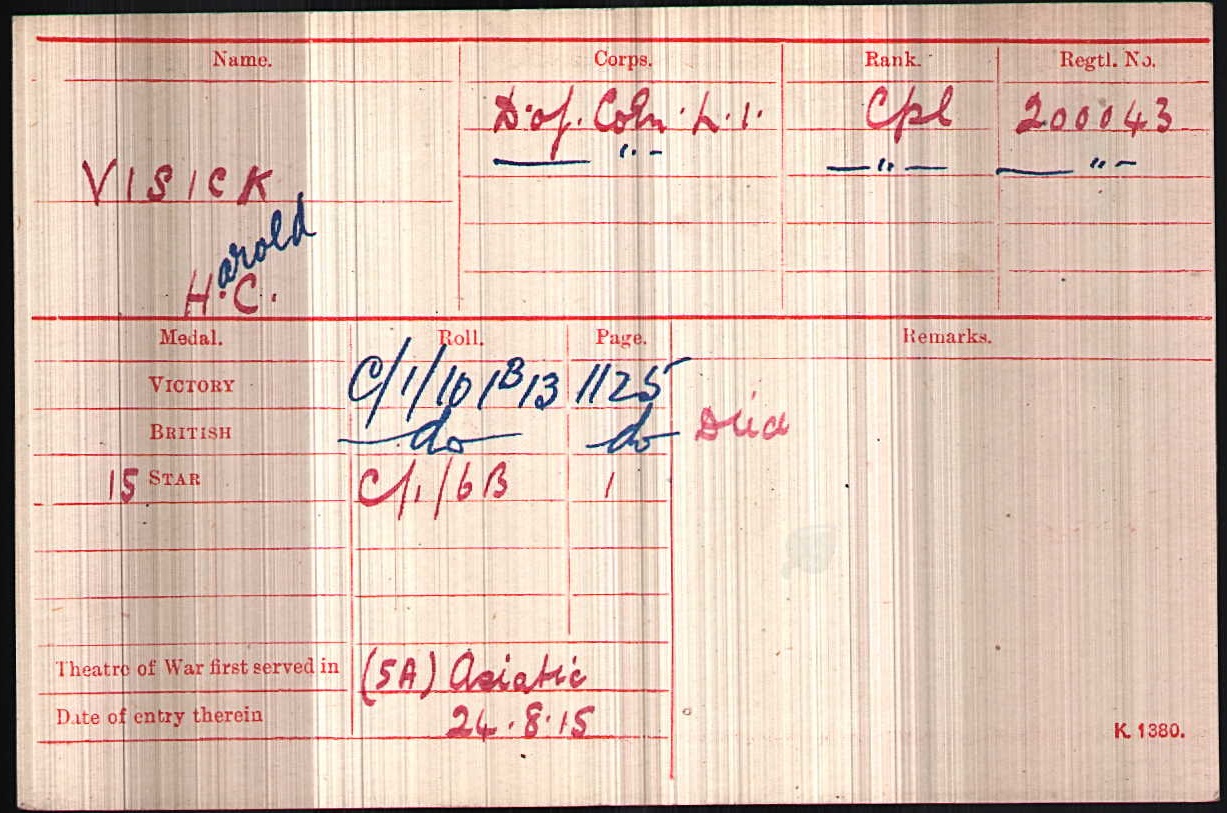 Name. Corps. Rank. Regtl. No.
D. of. Corn. L. I. Cpl 200043
— " — — " — — " —
VISICK
Harold
H. C.
Medal. Roll. Page. Remarks.
VICTORY C/1/101B13 1125
BRITISH do do Died
15 STAR C/1/6B 1
Theatre of War first served in (5A) Asiatic
Date of entry therein 24.8.15
K. 1380.